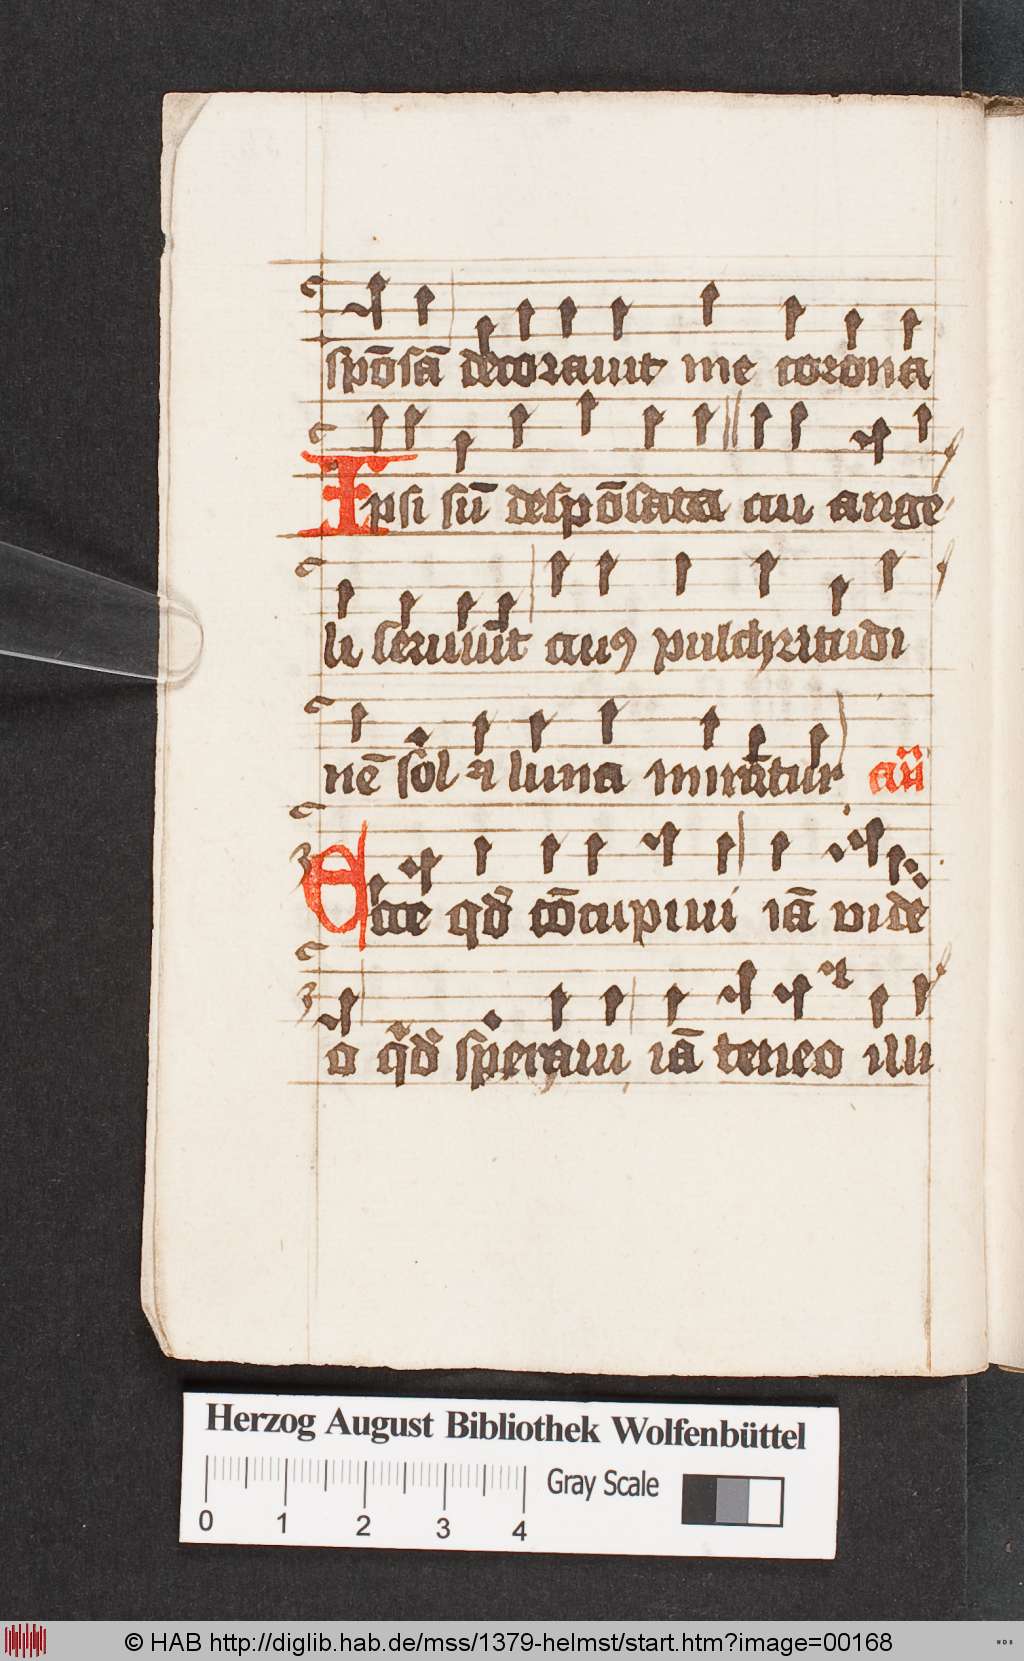 spōsā decorauit me corona
Ipsi sū despōsata cui ange
li seruiūt cuiꝰ pulchritudi
nē sol ⁊ luna mirātur añ
Ecce qd̄ cōcupiui iā vide
o qd̄ speraui iā teneo illi
Herzog August Bibliothek Wolfenbüttel
Gray Scale
0 1 2 3 4
© HAB http://diglib.hab.de/mss/1379-helmst/start.htm?image=00168